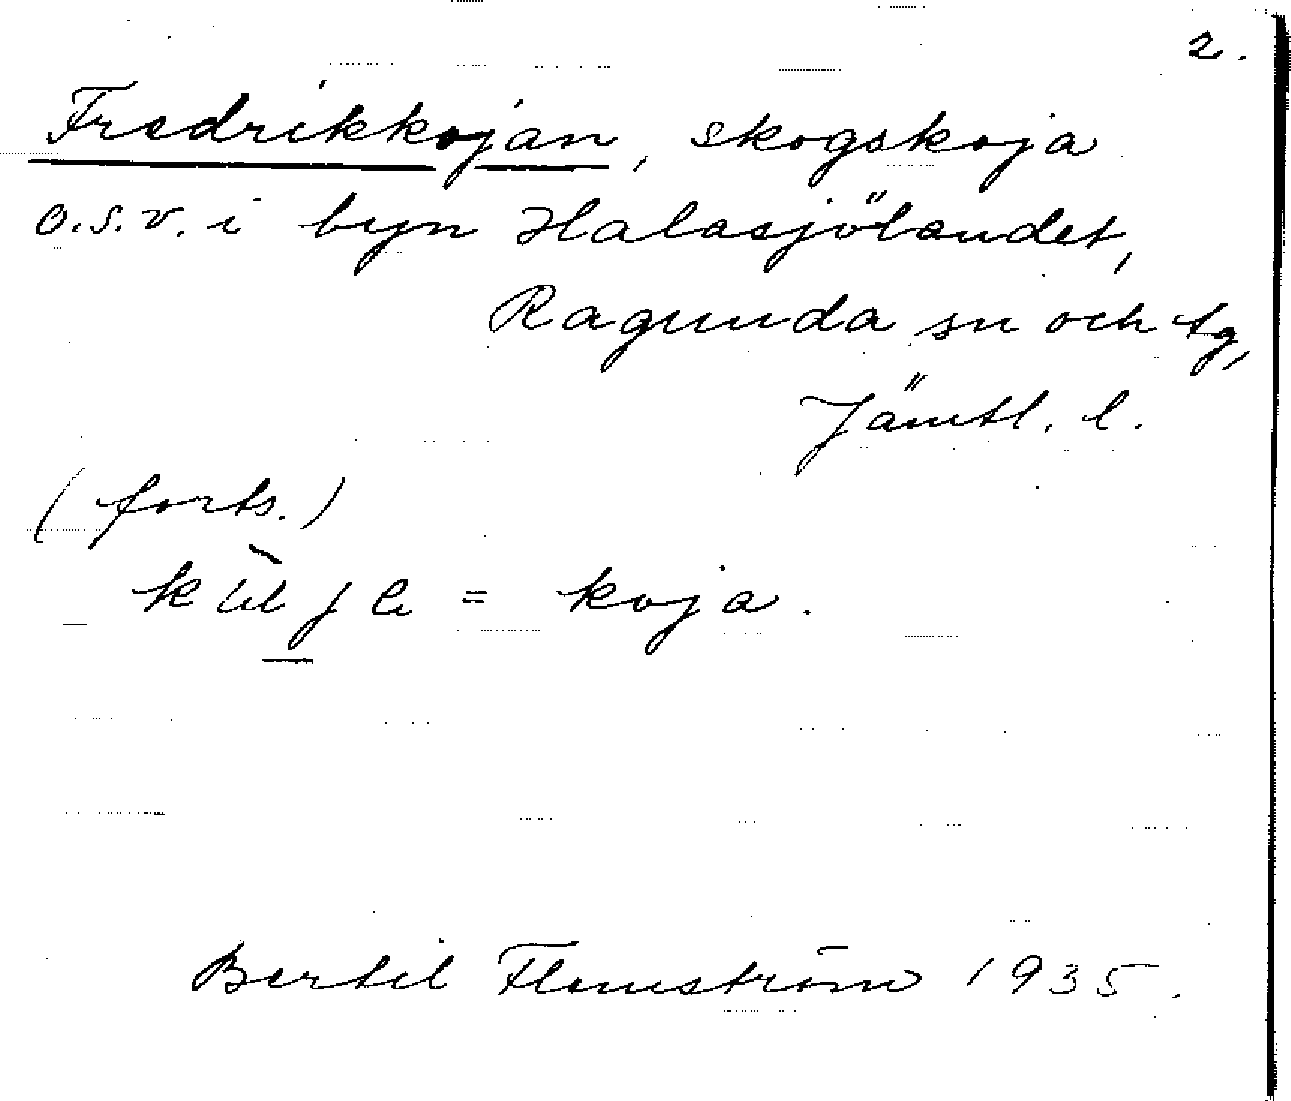 2.
Fredrikkojan, skogskoja
o.s.v. i byn Halasjölandet,
Ragunda sn och tg,
Jämtl. l.
(forts.)
= koja.
Bertil Flemström 1935.